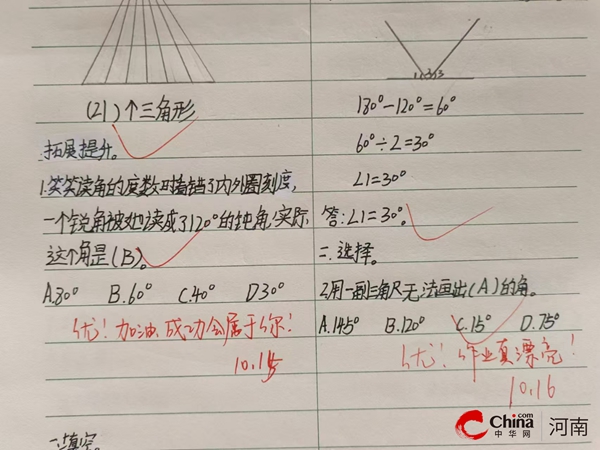 (21)个三角形
拓展提升。
1.笑笑读角的度数时搞错了内外圈刻度,
一个锐角被她读成了120°的钝角,实际
这个角是(B)。
A.80° B.60° C.40° D30°
优!加油,成功会属于你!
10.15
123
180°-120°=60°
60°÷2=30°
∠1=30°
答:∠1=30°。
二、选择。
2.用一副三角尺无法画出(A)的角。
A.145° B.120° C.15° D.75°
优!作业真漂亮!
10.16
一、填空。
China.com
中华网
河南